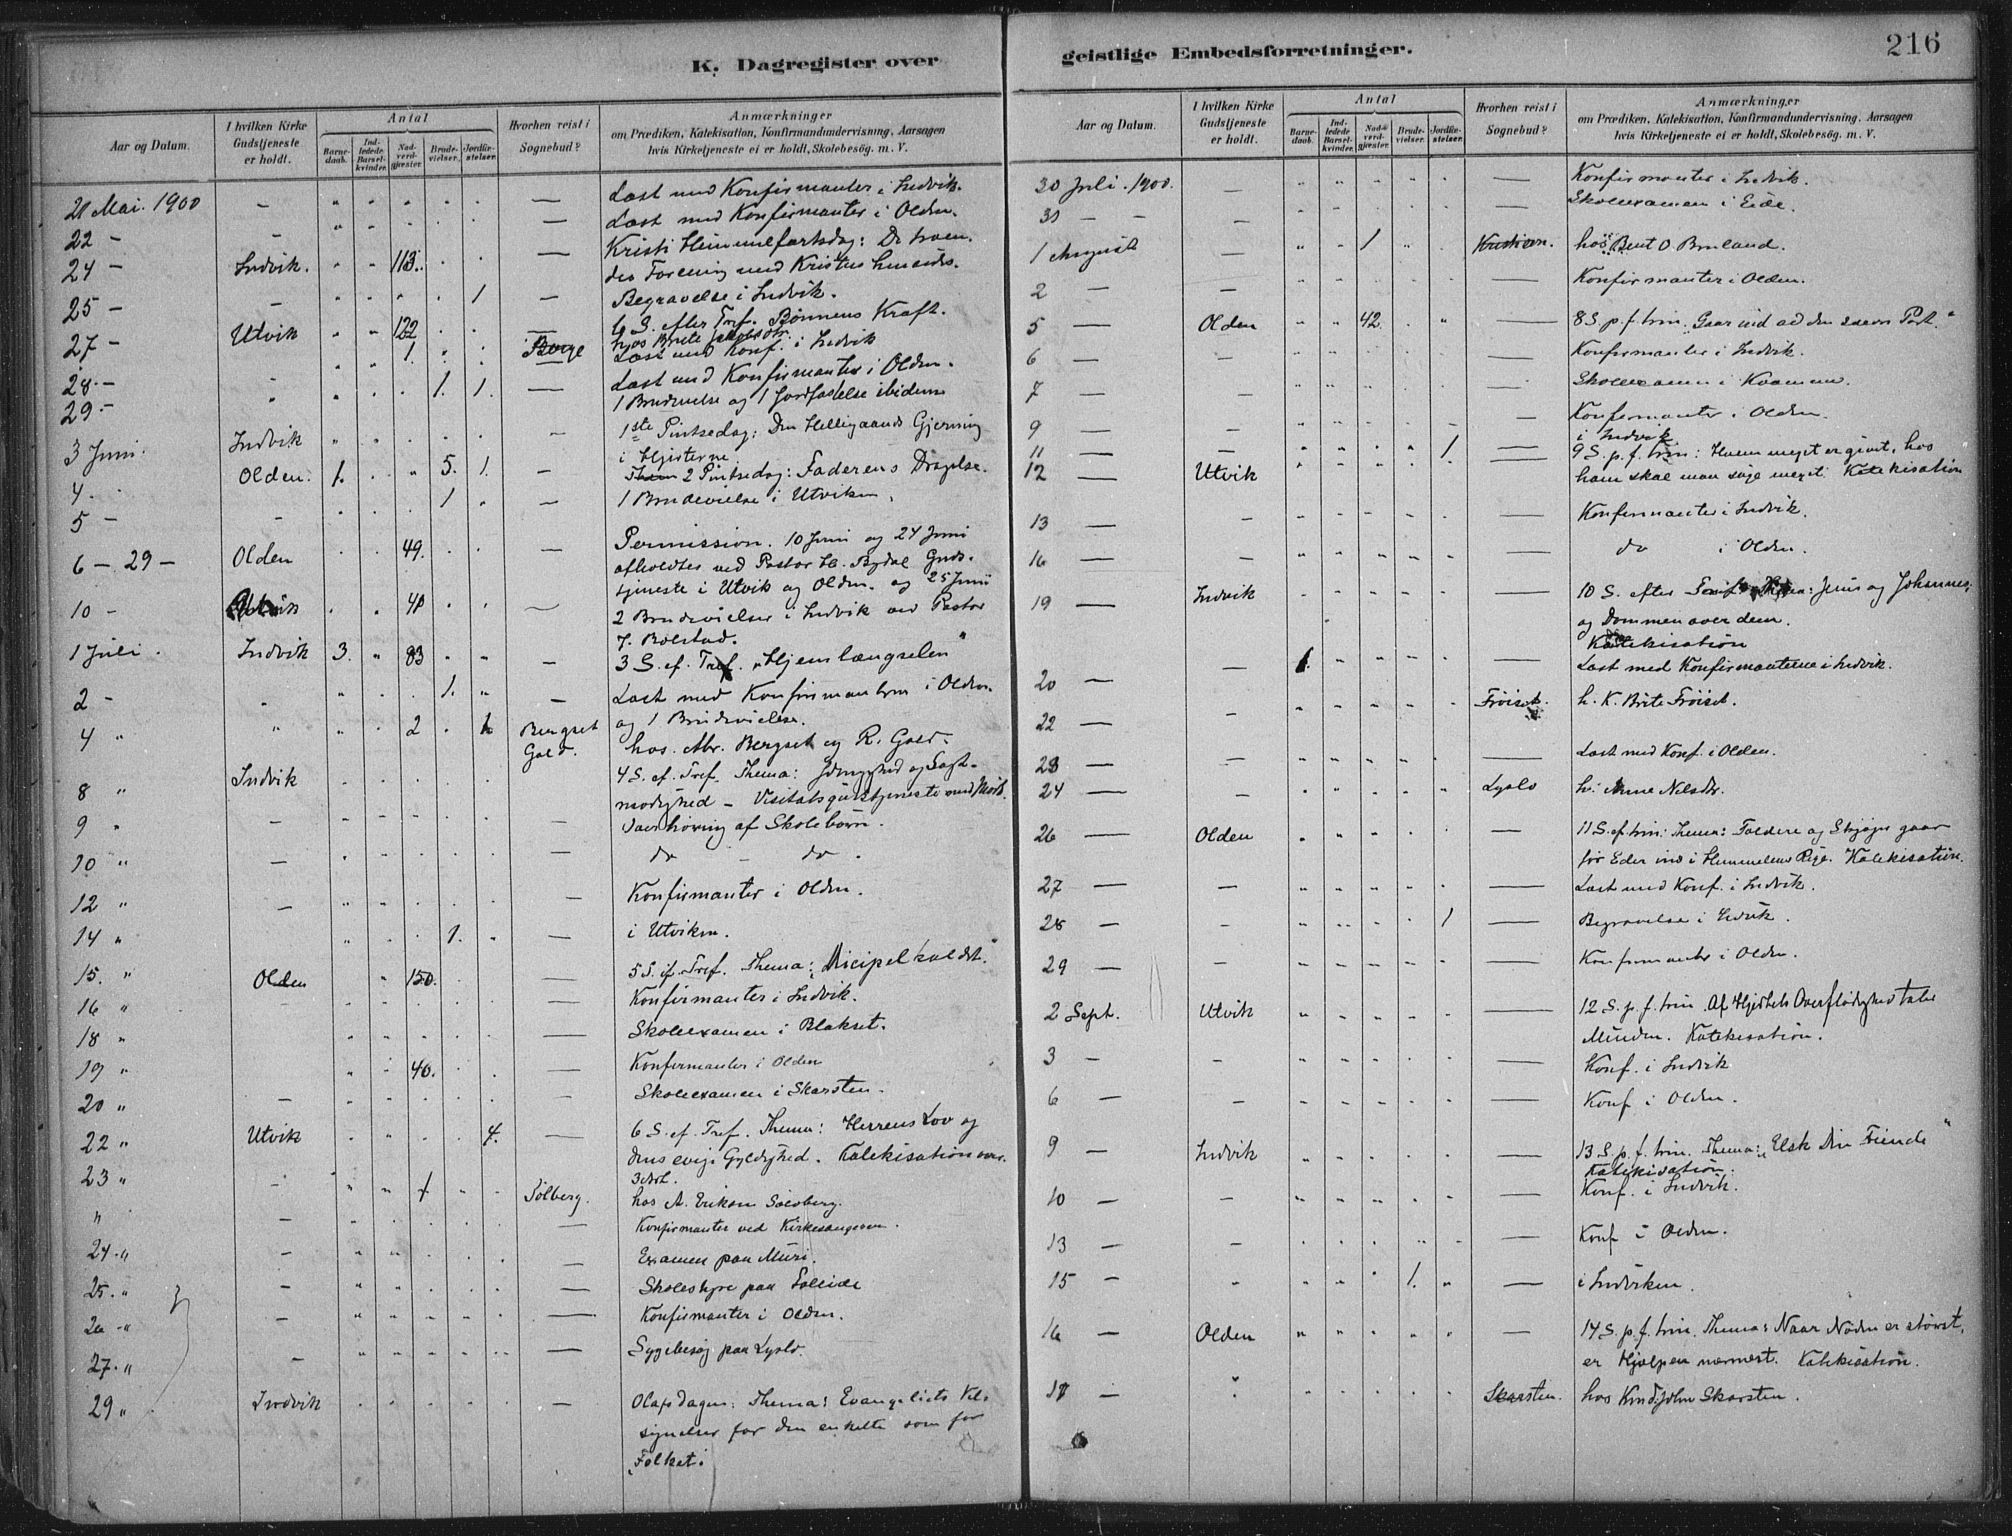 K. Dagregister over
Aar og Datum.
I hvilken Kirke Gudstjeneste er holdt.
Antal
Barne-daab.
Ind-ledede Barsel-kvinder.
Nad-verd-gjæster.
Brude-vielser.
Jordfæ-stelser.
Hvorhen reist i Sognebud?
Anmærkninger
om Prædiken, Katekisation, Konfirmandundervisning, Aarsagen
hvis Kirketjeneste ei er holdt, Skolebesøg. m. V.
21 Mai. 1900 Læst med Konfirmanter i Indvik.
22 - Læst med Konfirmanter i Olden.
24 - Indvik. 113. Kristi Himmelfartsdag: De troen-
des Forening med Kristus
25 - 1 Begravelse i Indvik.
27 - Utvik 122 6 S. efter Tref. Bønnens Kraft.
1 Berge hos Brite
28 - Læst med Konf. i Indvik
29 - 1. 1. Læst med Konfirmanter i Olden.
1 Brudevielse og 1 Jordfæstelse ibidem
3 Juni. Indvik 1ste Pintsedag: Den Helligaands Gjerning
i Hjerterne.
4. Olden. 1. 5. 1. 2 Pintsedag: Faderens Dragelse.
5 - 1 1 Brudevielse i Utviken.
6 - 29 - Olden 49. Permission. 10 Juni og 24 Juni
afholdtes ved Pastor H. Guds-
tjeneste i Utvik og Olden. og 25 Juni
10 - 40 2 Brudevielser i Indvik ved Pastor
J. Bolstad.
1 Juli. Indvik 3. 83 3 S. ef. Tref. "Hjemlængselen"
2 - 1. Læst med Konfirmanterne i Olden.
og 1 Brudevielse.
4 " 2 Bergset hos Abr. Bergset og R. Gald.
Gald.
8 " Indvik 4 S. ef. Tref. Thema: og Sagt-
modighed - Visitatsgudstjeneste med
9 " Overhøring af Skolebørn.
10 " do - do.
12 " Konfirmanter i Olden.
14 " 1. i Utviken.
15. " Olden 150. 5 S. ef. Tref. Thema: "Discipelkaldet."
16 " Konfirmanter i Indvik.
18 " Skoleexamen i Blakset.
19 " 40. Konfirmanter i Olden
20 " Skoleexamen i Skarsten.
22 " Utvik 4. 6 S. ef. Tref. Thema: Herrens Lov og
dens evige Gyldighed. Katekisation over
3 Art.
23 " 1 Solberg. hos A. Eriksen Solberg.
" Konfirmanter ved Kirkesangeren.
24. " Examen paa Muri.
25. " Skolestyre paa
26 " Konfirmanter i Olden.
27. " Sygebesøg paa Lyslo.
29 " Indvik Olafsdagen: Thema: Evangeliets Vel-
signelser for den enkelte som for
Folket.
geistlige Embedsforretninger.
216
Aar og Datum.
I hvilken Kirke Gudstjeneste er holdt.
Antal
Barne-daab.
Ind-ledede Barsel-kvinder.
Nad-verd-gjæster.
Brude-vielser.
Jordfæ-stelser.
Hvorhen reist i Sognebud?
Anmærkninger
om Prædiken, Katekisation, Konfirmandundervisning, Aarsagen
hvis Kirketjeneste ei er holdt, Skolebesøg. m. V.
30 Juli. 1900. Konfirmanter i Indvik.
31 - - Skoleexamen i Eide.
1 August 1 hos Bent O. Bruland.
2 - Konfirmanter i Olden.
5 - Olden 42. 8 S. p. f. trin. "Gaar ind ad den snevre Port."
6 - Konfirmanter i Indvik.
7 - Skoleexamen i Kvamme.
9 - Konfirmanter i Olden.
11 - 1 i Indvik
12 - Utvik 9 S. p. f. trin: Hvem meget er givet, hos
ham skal man søge meget. Katekisation
13 - Konfirmanter i Indvik.
16 - do i Olden.
19 - Indvik 10 S. efter Jesus og Johannes,
og Dommen over dem.
Katekisation
20 - 1. Læst med Konfirmanterne i Indvik.
22 - Frøiset. h. K. Brite Frøiset.
23 - Læst med Konf. i Olden.
24 - Lyslo h. Anne Nilsdtr.
26 - Olden 11 S. ef. trin: Thema: Toldere og Skjøger gaar
før Eder ind i Himmelens Rige. Katekisation.
27 - Læst med Konf. i Indvik.
28 - 1 Begravelse i Indvik.
29 - Konfirmanter i Olden.
2 Sept. Utvik 12 S. p. f. trin. Af Hjertets Overflødighed taler
Munden. Katekisation.
3 - Konf. i Indvik
6 - Konf i Olden.
9 - Indvik 13 S. p. f. trin. Thema: "Elsk Din Fiende"
Katekisation.
10 - Konf. i Indvik.
13 - Konf i Olden.
15 - 1. i Indviken.
16 - Olden 14 S. p. f. trin. Thema: Naar Nøden er størst,
er Hjælpen nærmest. Katekisation.
17 - Skarsten. hos Skarsten.